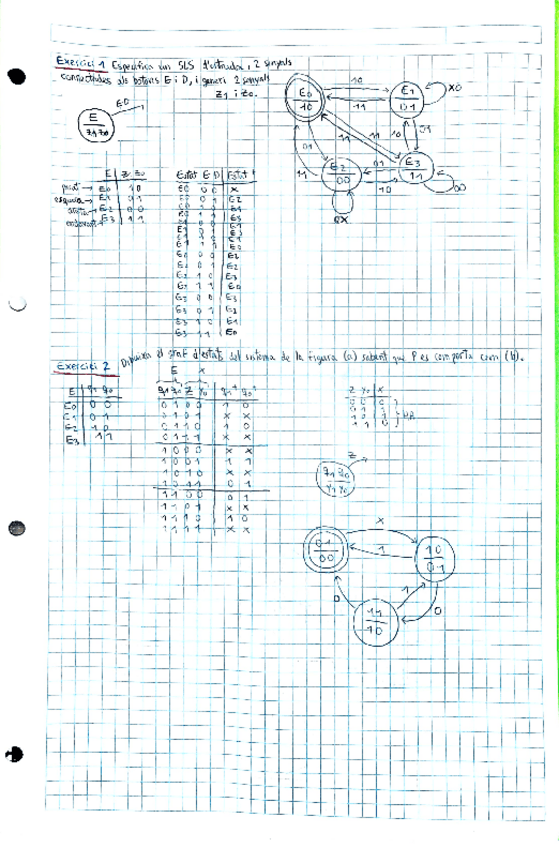 Exercici 1 Especifica un SLS d'entrada, 2 senyals
connectades als botons E i D, i generi 2 senyals
z1 i z0.
ED
E
z1 z0
E0
10
E1
01
E2
00
E3
11
10
11
X0
01
11
11
10
01
11
01
10
00
0X
E z1 z0
parat → E0 1 0
esquerra → E1 0 1
E2 0 0
endavant → E3 1 1
Estat E D Estat+
E0 0 0 X
E0 0 1 E2
E0 1 0 E1
E0 1 1 E3
E2 0 0 E2
E2 0 1 E2
E2 1 0 E3
E2 1 1 E0
E3 0 0 E3
E3 0 1 E2
E3 1 0 E1
E3 1 1 E0
Exercici 2 Dibuixa el graf d'estats del sistema de la figura (a) sabent que P es comporta com (b).
E q1 q0
E0 0 0
E1 0 1
E2 1 0
E3 1 1
E X
q1 q0 z y0 q1+ q0+
0 1 0 0 1 0
0 1 0 1 X X
0 1 1 0 1 0
0 1 1 1 X X
1 0 0 0 X X
1 0 0 1 1 1
1 0 1 0 X X
1 0 1 1 0 1
1 1 0 0 0 1
1 1 0 1 X X
1 1 1 0 1 0
1 1 1 1 X X
z y0 X
z
q1 q0
y1 y0
01
00
X
10
01
1
11
10
0
1
0